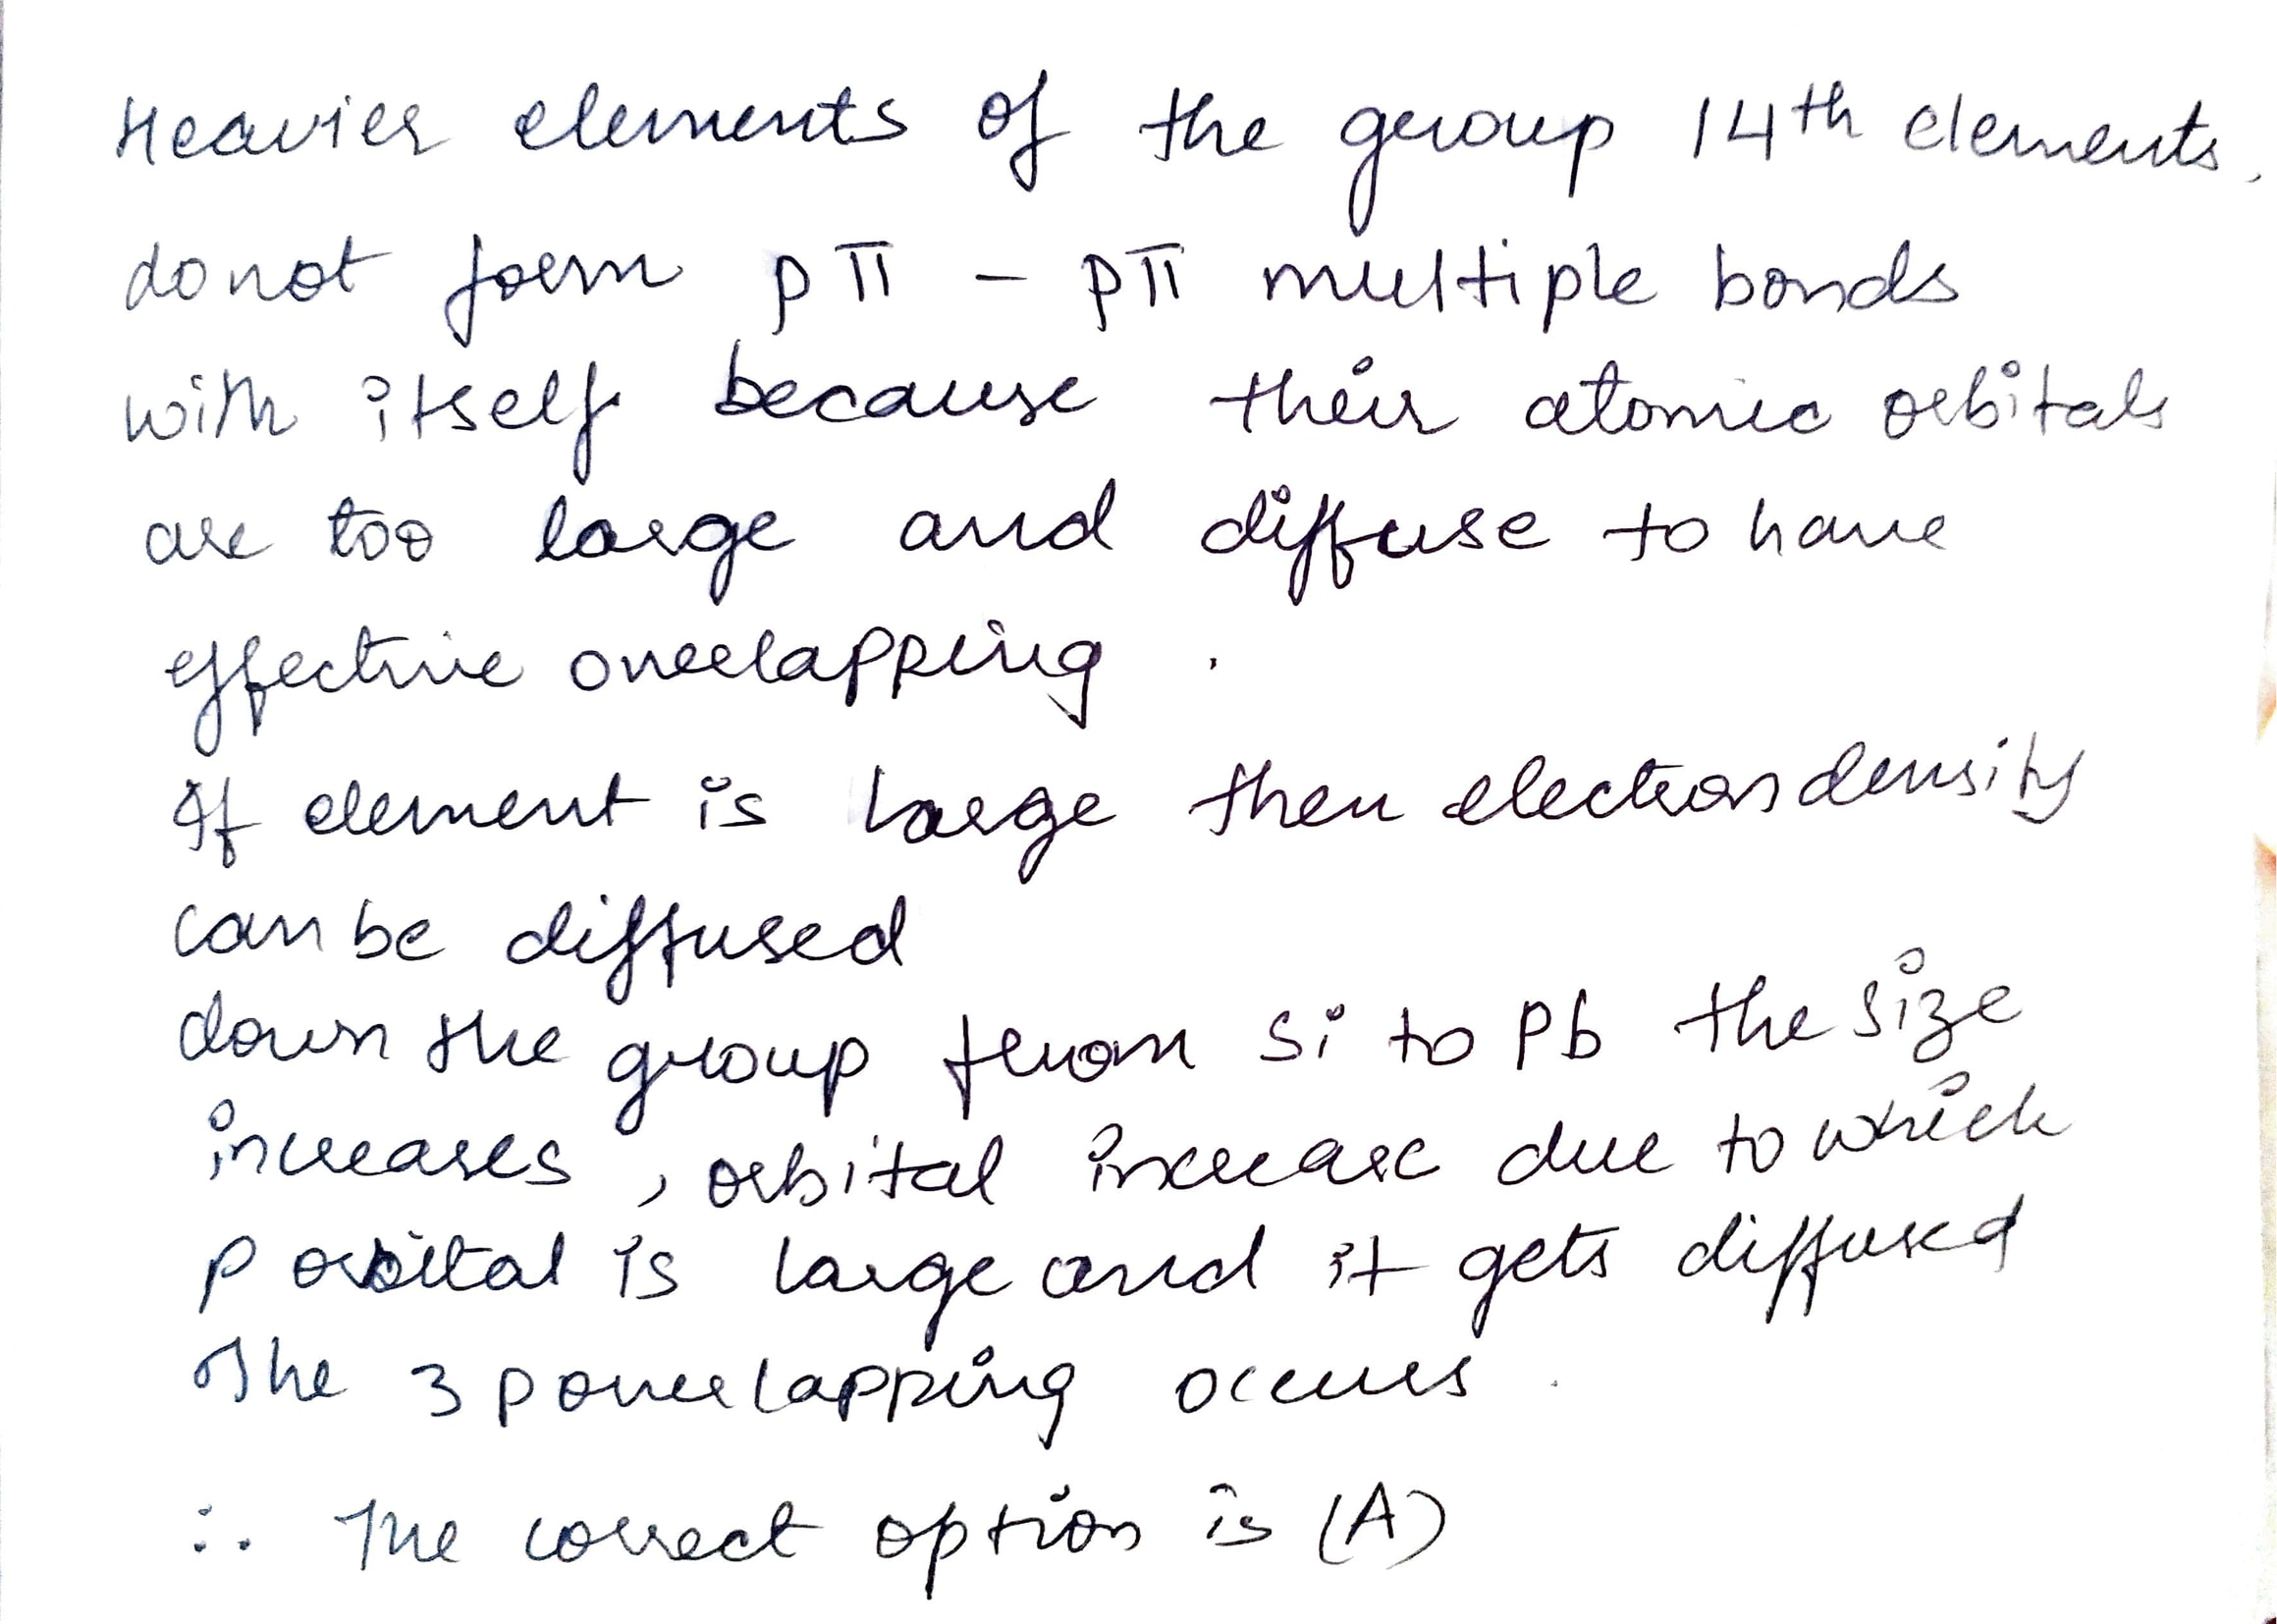 Heavier elements of the group 14th elements.
do not form pπ - pπ multiple bonds
with itself because their atomic orbitals
are too large and diffuse to have
effective overlapping .
If element is large then electron density
can be diffused
down the group from Si to Pb the size
increases , orbital increase due to which
p orbital is large and it gets diffused
The 3p overlapping occurs .
∴ The correct option is (A)